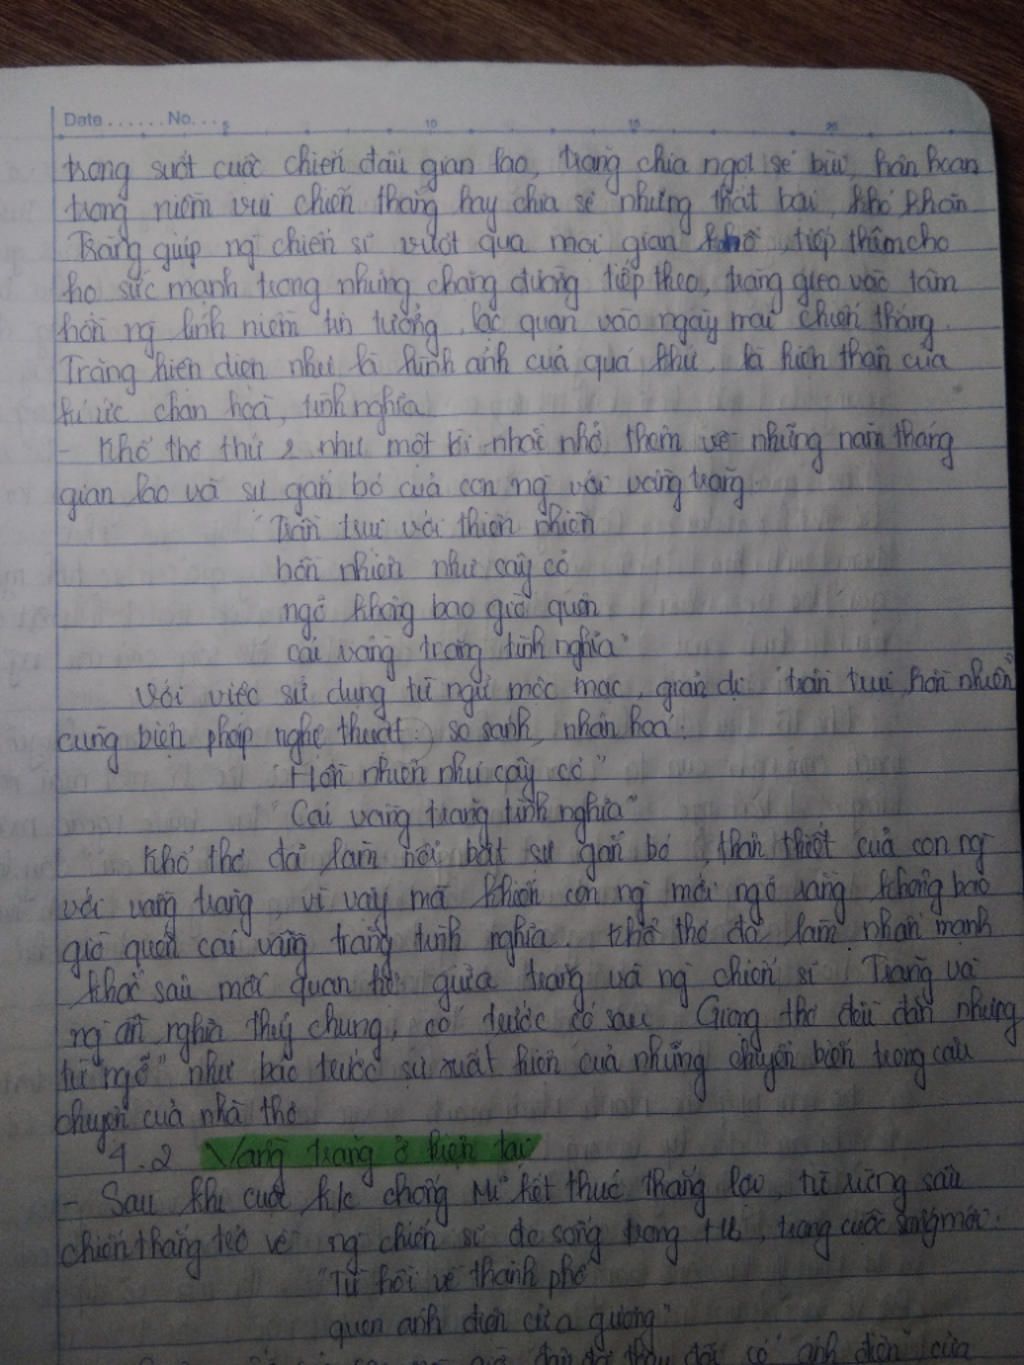 Date ...... No. ... 5 10 15 20
trong suốt cuộc chiến đấu gian lao, trăng chia ngọt sẻ bùi, hân hoan
trong niềm vui chiến thắng hay chia sẻ những thất bại, khó khăn
Trăng giúp ng chiến sĩ vượt qua mọi gian khổ, tiếp thêm cho
họ sức mạnh trong những chặng đường tiếp theo, trăng gieo vào tâm
hồn ng lính niềm tin tưởng, lạc quan vào ngày mai chiến thắng.
Trăng hiện diện như là hình ảnh của quá khứ, là hiện thân của
kí ức chan hoà, tình nghĩa
- Khổ thơ thứ 2 như một lời nhắc nhở thêm về những năm tháng
gian lao và sự gắn bó của con ng với vầng trăng
"Trần trụi với thiên nhiên
hồn nhiên như cây cỏ
ngỡ không bao giờ quên
cái vầng trăng tình nghĩa"
Với việc sử dụng từ ngữ mộc mạc, giản dị "trần trụi, hồn nhiên
cùng biện pháp nghệ thuật: so sánh, nhân hoá:
"Hồn nhiên như cây cỏ"
"Cái vầng trăng tình nghĩa"
Khổ thơ đã làm nổi bật sự gắn bó, thân thiết của con ng
với vầng trăng, vì vậy mà khiến con ng mới ngỡ rằng không bao
giờ quên cái vầng trăng tình nghĩa. Khổ thơ đã làm nhấn mạnh
khắc sâu mối quan hệ giữa trăng và ng chiến sĩ. Trăng và
ng ân nghĩa thuỷ chung, có trước có sau. Giọng thơ đều đặn nhưng
từ "ngỡ" như báo trước sự xuất hiện của những chuyển biến trong câu
chuyện của nhà thơ
4.2 Vầng trăng ở hiện tại
- Sau khi cuộc k/c chống Mĩ kết thúc thắng lợi, từ rừng sâu
chiến thắng trở về ng chiến sĩ đc sống trong , trong cuộc sống mới:
"Từ hồi về thành phố
quen ánh điện cửa gương"
ánh điện cửa